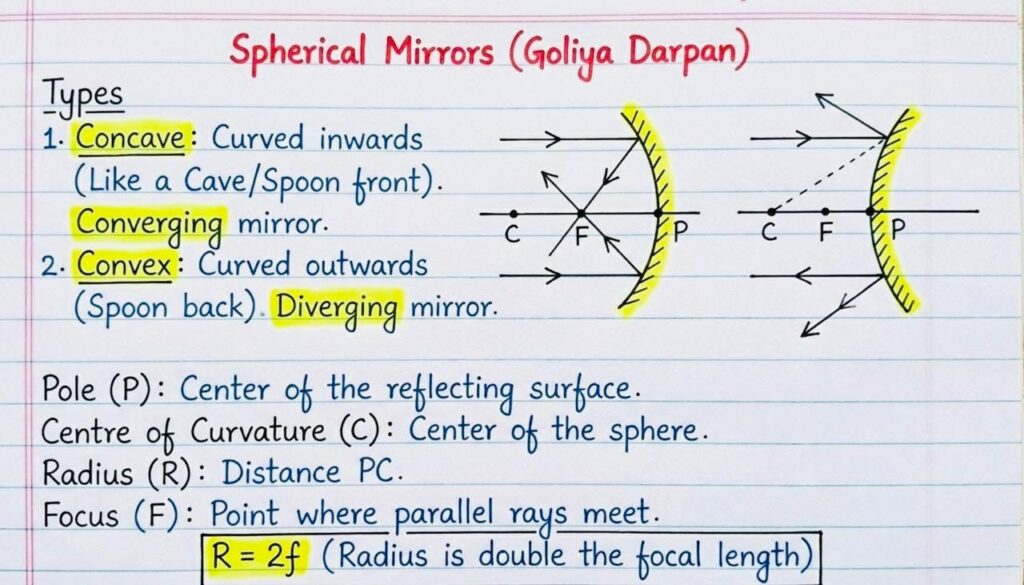 Spherical Mirrors (Goliya Darpan)
Types
1. Concave: Curved inwards
(Like a Cave/Spoon front).
Converging mirror.
2. Convex: Curved outwards
(Spoon back). Diverging mirror.
C F P
C F P
Pole (P): Center of the reflecting surface.
Centre of Curvature (C): Center of the sphere.
Radius (R): Distance PC.
Focus (F): Point where parallel rays meet.
R = 2f (Radius is double the focal length)